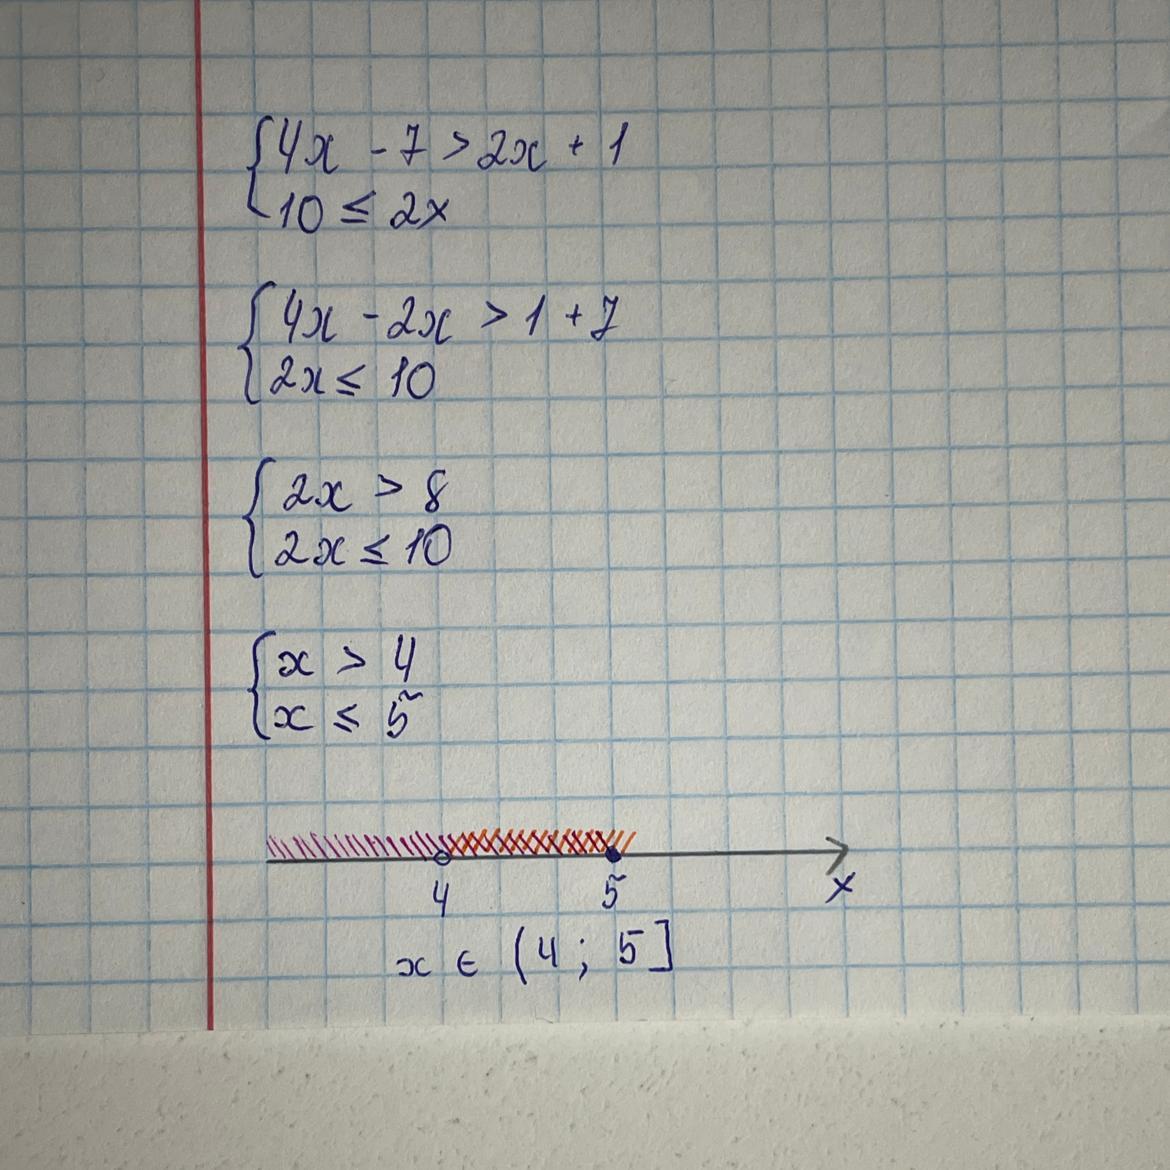 {4x - 7 > 2x + 1
10 ≤ 2x
{4x - 2x > 1 + 7
2x ≤ 10
{2x > 8
2x ≤ 10
{x > 4
x ≤ 5
4 5 x
x ∈ (4 ; 5]